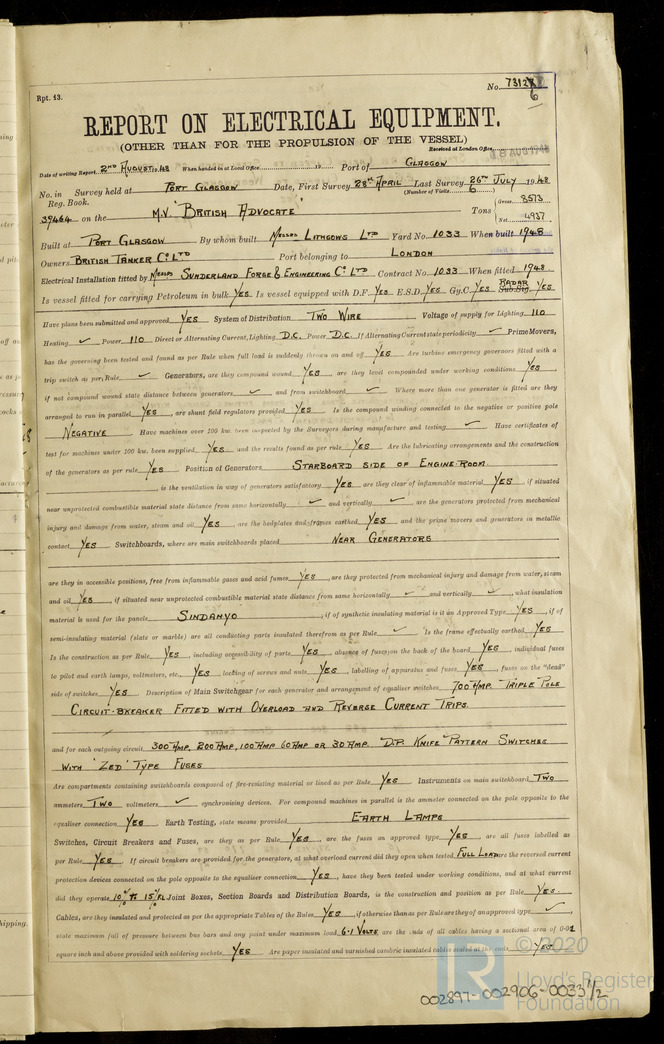 No. 7312
6
Rpt. 13.
REPORT ON ELECTRICAL EQUIPMENT.
(OTHER THAN FOR THE PROPULSION OF THE VESSEL)
Received at London Office
Date of writing Report 2ND AUGUST 1948 When handed in at Local Office 19 Port of GLASGOW
No. in Survey held at PORT GLASGOW Date, First Survey 28TH APRIL Last Survey 26TH JULY 1948
Reg. Book. (Number of Visits 6)
39464 on the M.V. 'BRITISH ADVOCATE' Tons { Gross 8573 Net 4937
Built at PORT GLASGOW By whom built MESSRS LITHGOWS LTD Yard No. 1033 When built 1948
Owners BRITISH TANKER CO. LTD Port belonging to LONDON
Electrical Installation fitted by MESSRS SUNDERLAND FORGE & ENGINEERING CO. LTD Contract No. 1033 When fitted 1948
Is vessel fitted for carrying Petroleum in bulk YES Is vessel equipped with D.F. YES E.S.D. YES Gy.C. YES RADAR Sub.Sig. YES
Have plans been submitted and approved YES System of Distribution TWO WIRE Voltage of supply for Lighting 110
Heating ✓ Power 110 Direct or Alternating Current, Lighting D.C. Power D.C. If Alternating Current state periodicity ✓ Prime Movers,
has the governing been tested and found as per Rule when full load is suddenly thrown on and off YES Are turbine emergency governors fitted with a
trip switch as per Rule ✓ Generators, are they compound wound YES, are they level compounded under working conditions YES,
if not compound wound state distance between generators ✓ and from switchboard ✓ Where more than one generator is fitted are they
arranged to run in parallel YES, are shunt field regulators provided YES Is the compound winding connected to the negative or positive pole
NEGATIVE Have machines over 100 kw. been inspected by the Surveyors during manufacture and testing ✓ Have certificates of
test for machines under 100 kw. been supplied YES and the results found as per rule YES Are the lubricating arrangements and the construction
of the generators as per rule YES Position of Generators STARBOARD SIDE OF ENGINE-ROOM
, is the ventilation in way of generators satisfactory YES are they clear of inflammable material YES, if situated
near unprotected combustible material state distance from same horizontally ✓ and vertically ✓, are the generators protected from mechanical
injury and damage from water, steam and oil YES, are the bedplates and frames earthed YES and the prime movers and generators in metallic
contact YES Switchboards, where are main switchboards placed NEAR GENERATORS
are they in accessible positions, free from inflammable gases and acid fumes YES, are they protected from mechanical injury and damage from water, steam
and oil YES, if situated near unprotected combustible material state distance from same horizontally ✓ and vertically ✓, what insulation
material is used for the panels SINDANYO, if of synthetic insulating material is it an Approved Type YES, if of
semi-insulating material (slate or marble) are all conducting parts insulated therefrom as per Rule ✓ Is the frame effectually earthed YES
Is the construction as per Rule YES, including accessibility of parts YES, absence of fuses on the back of the board YES, individual fuses
to pilot and earth lamps, voltmeters, etc., YES locking of screws and nuts YES, labelling of apparatus and fuses YES, fuses on the "dead"
side of switches YES Description of Main Switchgear for each generator and arrangement of equaliser switches 700 AMP. TRIPLE POLE
CIRCUIT-BREAKER FITTED WITH OVERLOAD AND REVERSE CURRENT TRIPS.
and for each outgoing circuit 300 AMP, 200 AMP, 100 AMP 60 AMP OR 30 AMP. D.P. KNIFE PATTERN SWITCHES
WITH 'ZED' TYPE FUSES
Are compartments containing switchboards composed of fire-resisting material or lined as per Rule YES Instruments on main switchboard TWO
ammeters TWO voltmeters ✓ synchronising devices. For compound machines in parallel is the ammeter connected on the pole opposite to the
equaliser connection YES Earth Testing, state means provided EARTH LAMPS
Switches, Circuit Breakers and Fuses, are they as per Rule YES, are the fuses an approved type YES, are all fuses labelled as
per Rule YES If circuit breakers are provided for the generators, at what overload current did they open when tested FULL LOAD are the reversed current
protection devices connected on the pole opposite to the equaliser connection YES, have they been tested under working conditions, and at what current
did they operate 10% TO 15% FL Joint Boxes, Section Boards and Distribution Boards, is the construction and position as per Rule YES
Cables, are they insulated and protected as per the appropriate Tables of the Rules YES, if otherwise than as per Rule are they of an approved type ✓,
state maximum fall of pressure between bus bars and any point under maximum load 6.1 VOLTS are the ends of all cables having a sectional area of 0.01
square inch and above provided with soldering sockets YES Are paper insulated and varnished cambric insulated cables sealed at the ends YES
© 2020
LR
Lloyd's Register
Foundation
002897-002906-0033 1/2